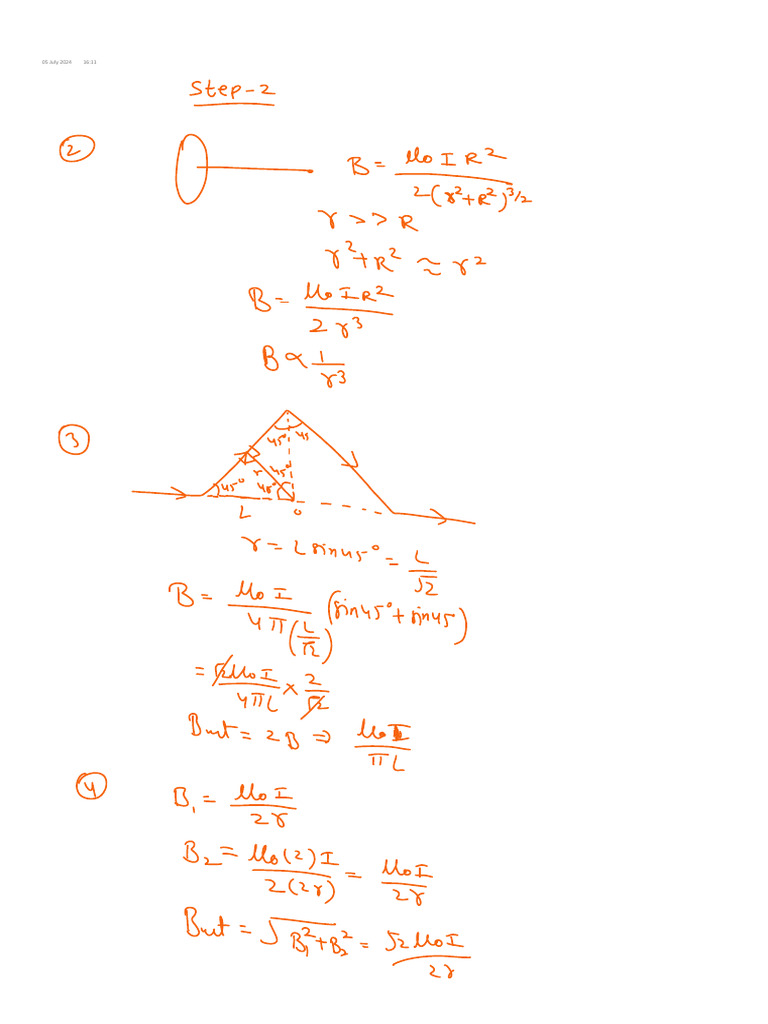 05 July 2024 16:11
Step-2
2
B = μ₀ I R² / 2(r²+R²)^3/2
r >> R
r²+R² ≈ r²
B = μ₀ I R² / 2 r³
B ∝ 1/r³
3
45° 45
r 45°
45° 45°
L O
r = L sin45° = L/√2
B = μ₀ I / 4π(L/√2) (sin45° + sin45)
= √2 μ₀ I / 4πL × 2/√2
Bnet = 2B ⇒ μ₀ I / πL
4
B₁ = μ₀ I / 2r
B₂ = μ₀ (2) I / 2(2r) = μ₀ I / 2r
Bnet = √(B₁² + B₂²) = √2 μ₀ I / 2r